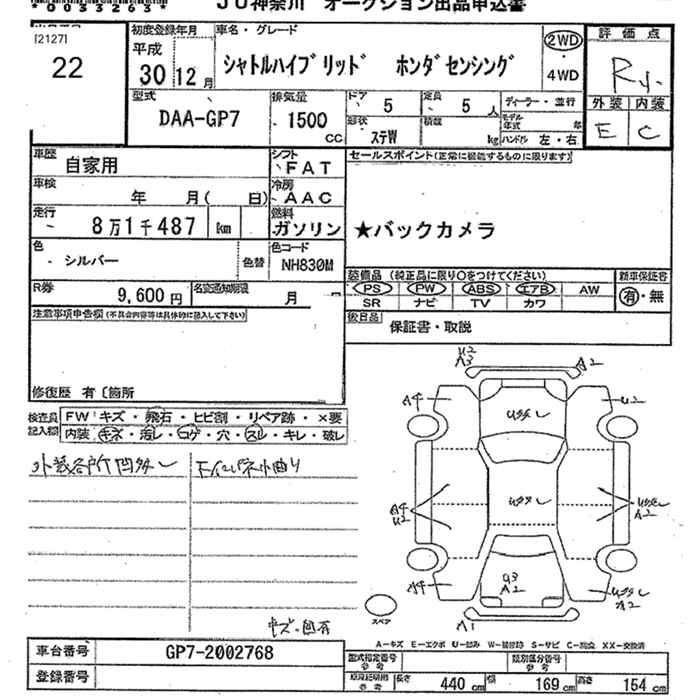 *0053263* JU神奈川 オークション出品申込書
[2127]
22
初度登録年月
平成 30 12月
車名・グレード
シャトルハイブリッド ホンダセンシング
2WD
・4WD
評価点
R
外装 内装
E C
型式
DAA-GP7
排気量
1500 CC
ドア 5 定員 5人
ディーラー・並行
形状 ステW 積載 kg
モデル年式 年
ハンドル 左・右
車歴 自家用
シフト FAT
車検 年 月( 日)
冷房 AAC
走行 8万1千487 km
燃料 ガソリン
色 シルバー 色替
色コード NH830M
R券 9,600円 名変通知期限 月
セールスポイント(正常に機能するものに限ります)
★バックカメラ
装備品(純正品に限り○をつけてください) 新車保証書
PS PW ABS エアB AW 有・無
SR ナビ TV カワ
後日品 保証書・取説
注意事項申告欄(不具合内容等は具体的に記入して下さい)
修復歴 有〔箇所
検査員記入欄 FW キズ・飛石・ヒビ割・リペア跡・×要
内装 キズ・汚レ・コゲ・穴・スレ・キレ・破レ
外装各所凹多シ
下廻りバネ小曲り
キズ・凹有
U2
A3
A2
A4
U2
U多シ
A4
U2
U多シ
U多シ
A2
A4
U3
A2
U多シ
A2
A1
スペア
A-キズ E-エクボ U-凹み W-補修跡 S-サビ C-腐食 XX-交換済
車台番号 GP7-2002768
登録番号
型式指定番号 参考 類別区分番号 参考
車検証明細 参考 長さ 440cm 幅 169cm 高さ 154cm